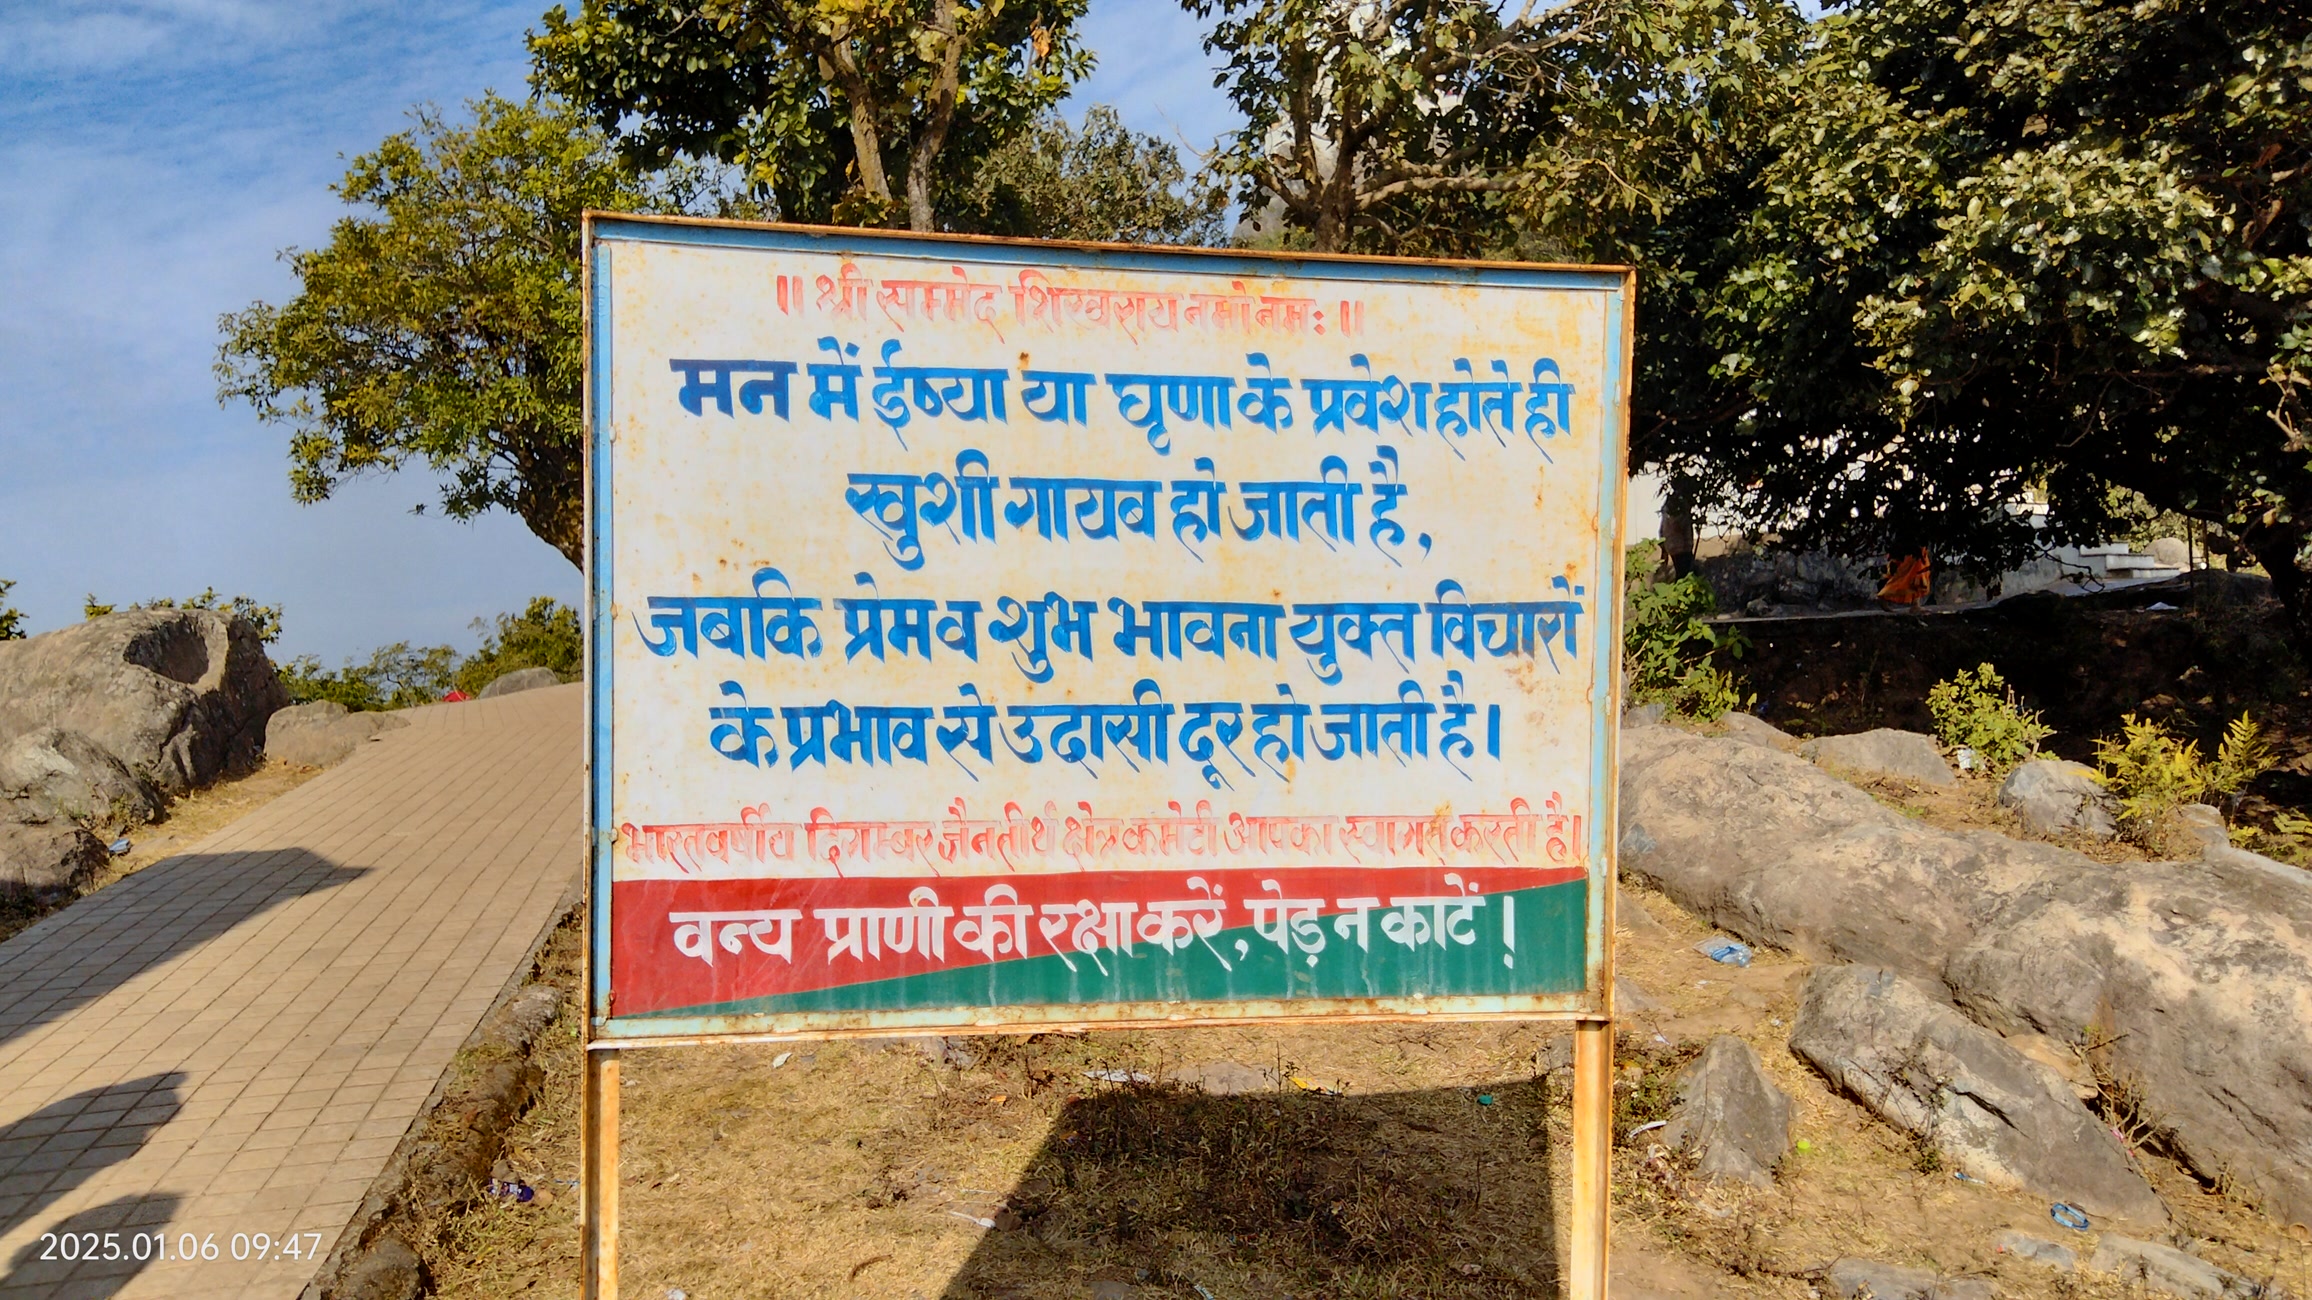 ॥ श्री सम्मेद शिखराय नमो नमः ॥
मन में ईष्या या घृणा के प्रवेश होते ही
खुशी गायब हो जाती है,
जबकि प्रेम व शुभ भावना युक्त विचारों
के प्रभाव से उदासी दूर हो जाती है।
भारतवर्षीय दिगम्बर जैन तीर्थ क्षेत्र कमेटी आपका स्वागत करती है।
वन्य प्राणी की रक्षा करें, पेड़ न काटें !
2025.01.06 09:47